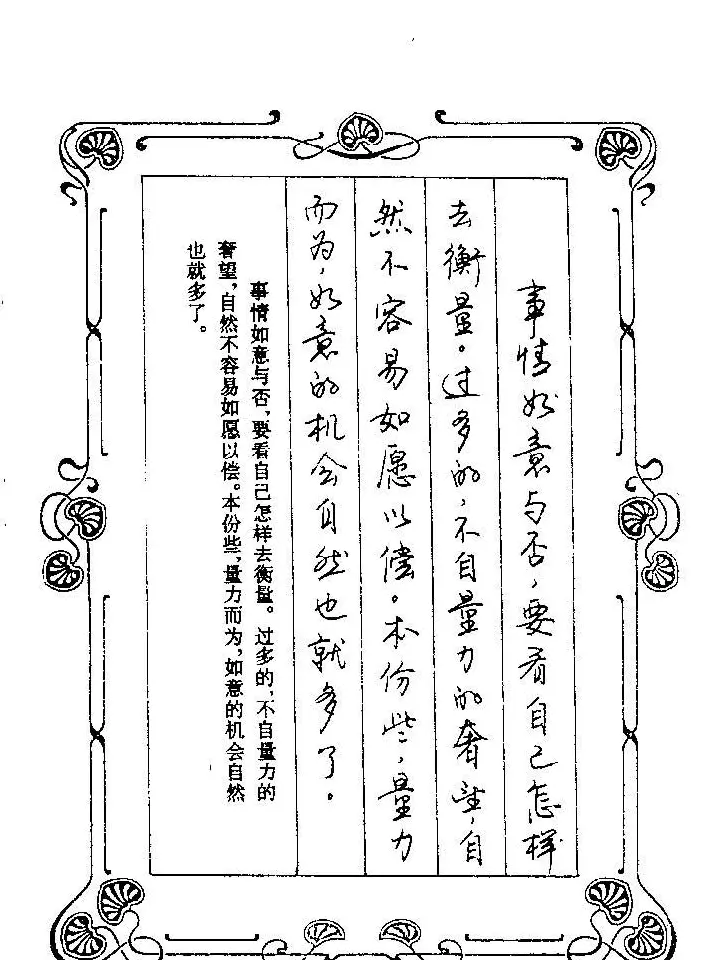 事情如意与否，要看自己怎样
去衡量。过多的，不自量力的奢望，自
然不容易如愿以偿。本份些，量力
而为，如意的机会自然也就多了。
事情如意与否，要看自己怎样去衡量。过多的，不自量力的
奢望，自然不容易如愿以偿。本份些，量力而为，如意的机会自然
也就多了。